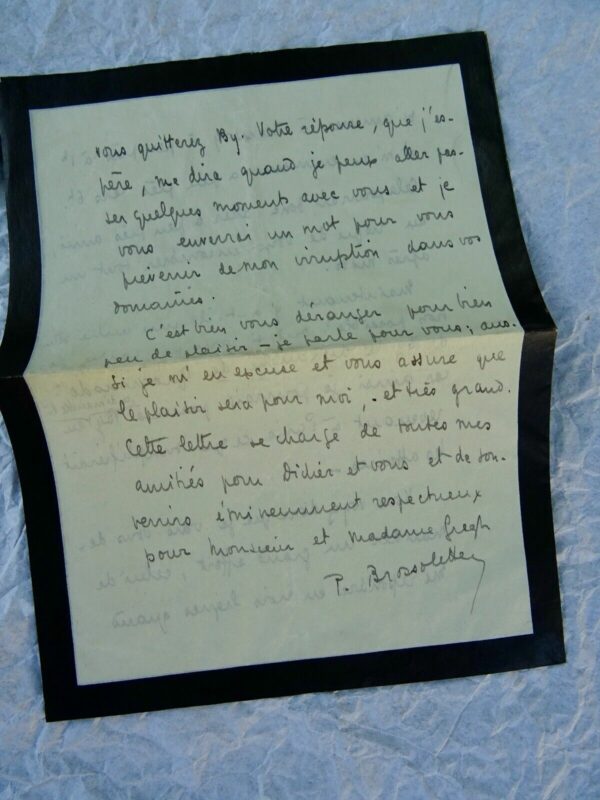 vous quitterez By. Votre réponse, que j'es-
père, me dira quand je peux aller pas-
ser quelques moments avec vous et je
vous enverrai un mot pour vous
prévenir de mon irruption dans vos
domaines.
C'est bien vous déranger pour bien
peu de plaisir – je parle pour vous ; aus-
si je m'en excuse et vous assure que
le plaisir sera pour moi, – et très grand.
Cette lettre se charge de toutes mes
amitiés pour Didier et vous et de sou-
venirs éminemment respectueux
pour Monsieur et Madame Gregh
P. Brossolette